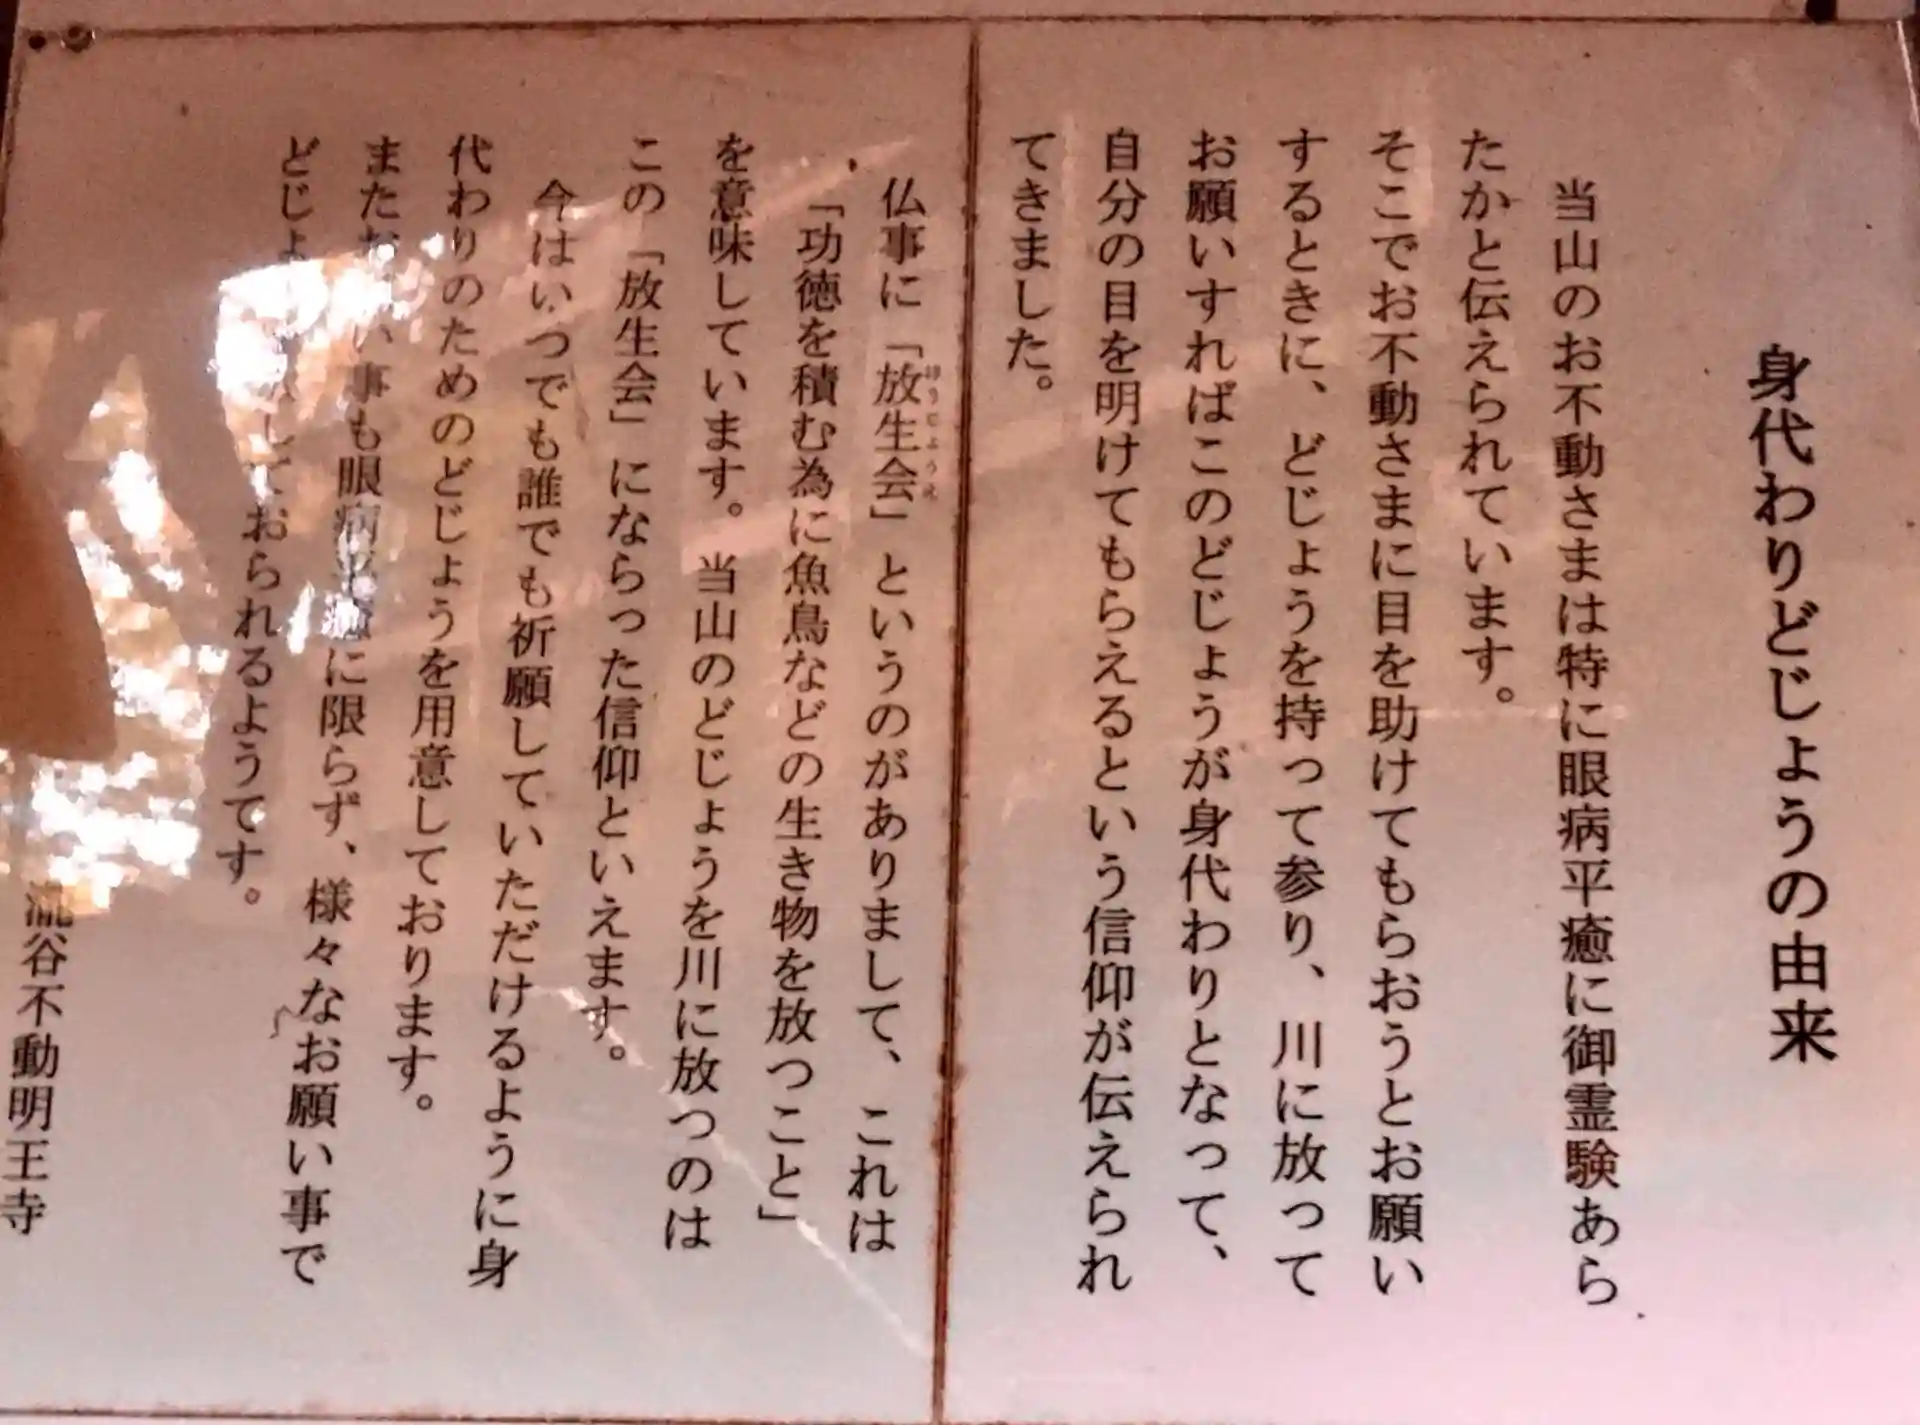 身代わりどじょうの由来
当山のお不動さまは特に眼病平癒に御霊験あら
たかと伝えられています。
そこでお不動さまに目を助けてもらおうとお願い
するときに、どじょうを持って参り、川に放って
お願いすればこのどじょうが身代わりとなって、
自分の目を明けてもらえるという信仰が伝えられ
てきました。
仏事に「放生会」というのがありまして、これは
ほうじょうえ
「功徳を積む為に魚鳥などの生き物を放つこと」
を意味しています。当山のどじょうを川に放つのは
この「放生会」にならった信仰といえます。
今はいつでも誰でも祈願していただけるように身
代わりのためのどじょうを用意しております。
また い事も眼病平癒に限らず、様々なお願い事で
どじょ しておられるようです。
瀧谷不動明王寺